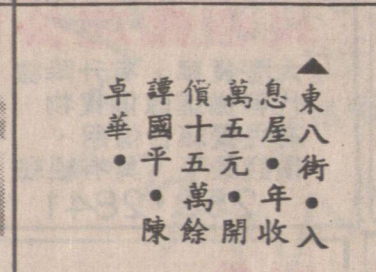 ▲東八街•入
息屋•年收
萬五元•開
價十五萬餘
譚國平•陳
卓華•